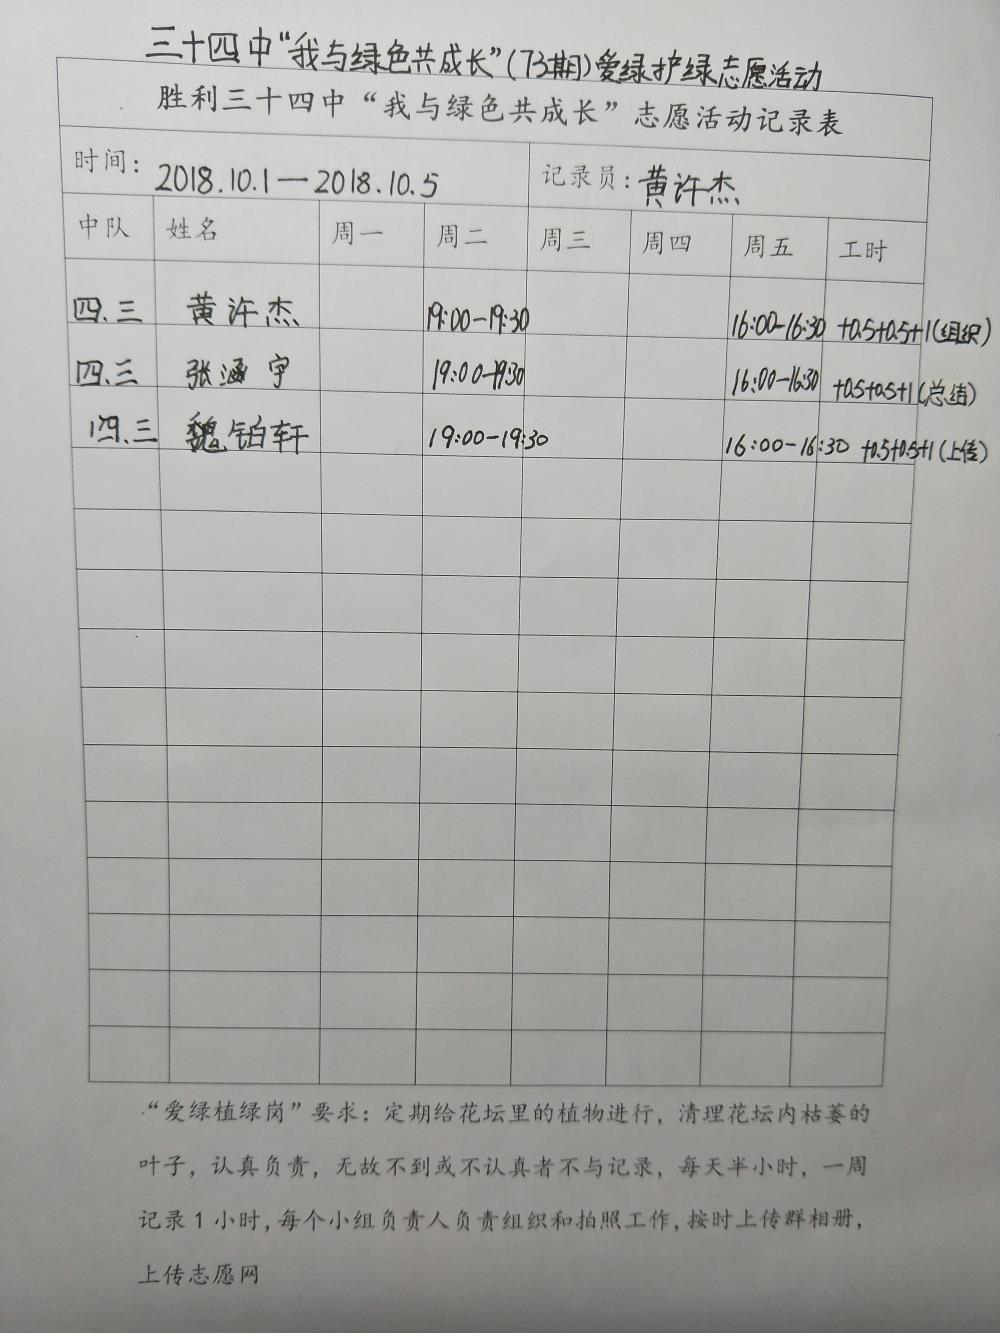 三十四中“我与绿色共成长”(73期)爱绿护绿志愿活动
胜利三十四中“我与绿色共成长”志愿活动记录表
时间：2018.10.1—2018.10.5 记录员：黄许杰
中队 姓名 周一 周二 周三 周四 周五 工时
四.三 黄许杰 19:00-19:30 16:00-16:30 +0.5+0.5+1(组织)
四.三 张涵宇 19:00-19:30 16:00-16:30 +0.5+0.5+1(总结)
四.三 魏铂轩 19:00-19:30 16:00-16:30 +0.5+0.5+1(上传)
“爱绿植绿岗”要求：定期给花坛里的植物进行，清理花坛内枯萎的
叶子，认真负责，无故不到或不认真者不与记录，每天半小时，一周
记录1小时，每个小组负责人负责组织和拍照工作，按时上传群相册，
上传志愿网